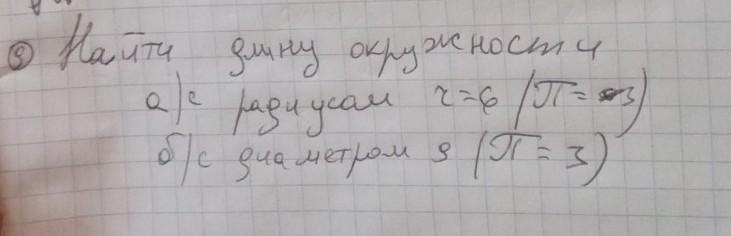 9 Найти длину окружности
а/с радиусом r=6 (П=3)
б/с диаметром 9 (П=3)